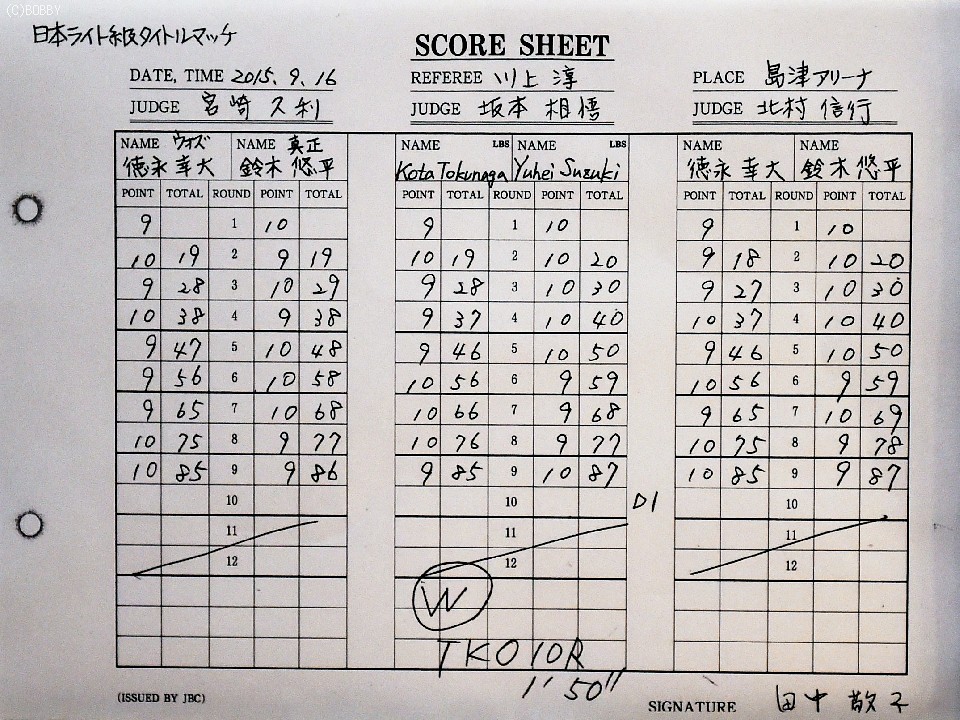 (C)BOBBY
日本ライト級タイトルマッチ
SCORE SHEET
DATE, TIME 2015. 9. 16 REFEREE 川上 淳 PLACE 島津アリーナ
JUDGE 宮崎 久利 JUDGE 坂本 相悟 JUDGE 北村 信行
NAME ウォズ NAME 真正 NAME LBS NAME LBS NAME NAME
徳永 幸大 鈴木 悠平 Kota Tokunaga Yuhei Suzuki 徳永 幸大 鈴木 悠平
POINT TOTAL ROUND POINT TOTAL POINT TOTAL ROUND POINT TOTAL POINT TOTAL ROUND POINT TOTAL
9 1 10 9 1 10 9 1 10
10 19 2 9 19 10 19 2 10 20 9 18 2 10 20
9 28 3 10 29 9 28 3 10 30 9 27 3 10 30
10 38 4 9 38 9 37 4 10 40 10 37 4 10 40
9 47 5 10 48 9 46 5 10 50 9 46 5 10 50
9 56 6 10 58 10 56 6 9 59 10 56 6 9 59
9 65 7 10 68 10 66 7 9 68 9 65 7 10 69
10 75 8 9 77 10 76 8 9 77 10 75 8 9 78
10 85 9 9 86 9 85 9 10 87 10 85 9 9 87
10 10 D1 10
11 11 11
12 12 12
W
TKO 10R
1'50"
(ISSUED BY JBC) SIGNATURE 田中 敬子